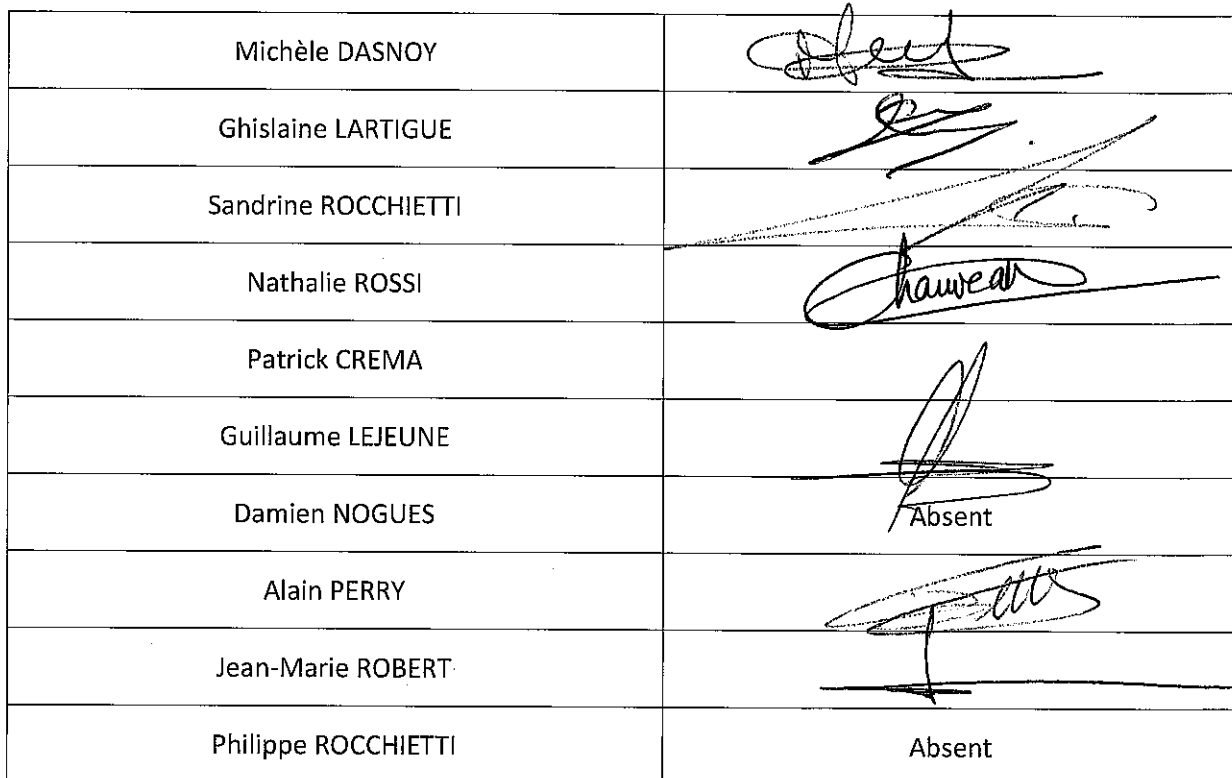 Michèle DASNOY
Ghislaine LARTIGUE
Sandrine ROCCHIETTI
Nathalie ROSSI
Chauveau
Patrick CREMA
Guillaume LEJEUNE
Damien NOGUES Absent
Alain PERRY
Jean-Marie ROBERT
Philippe ROCCHIETTI Absent